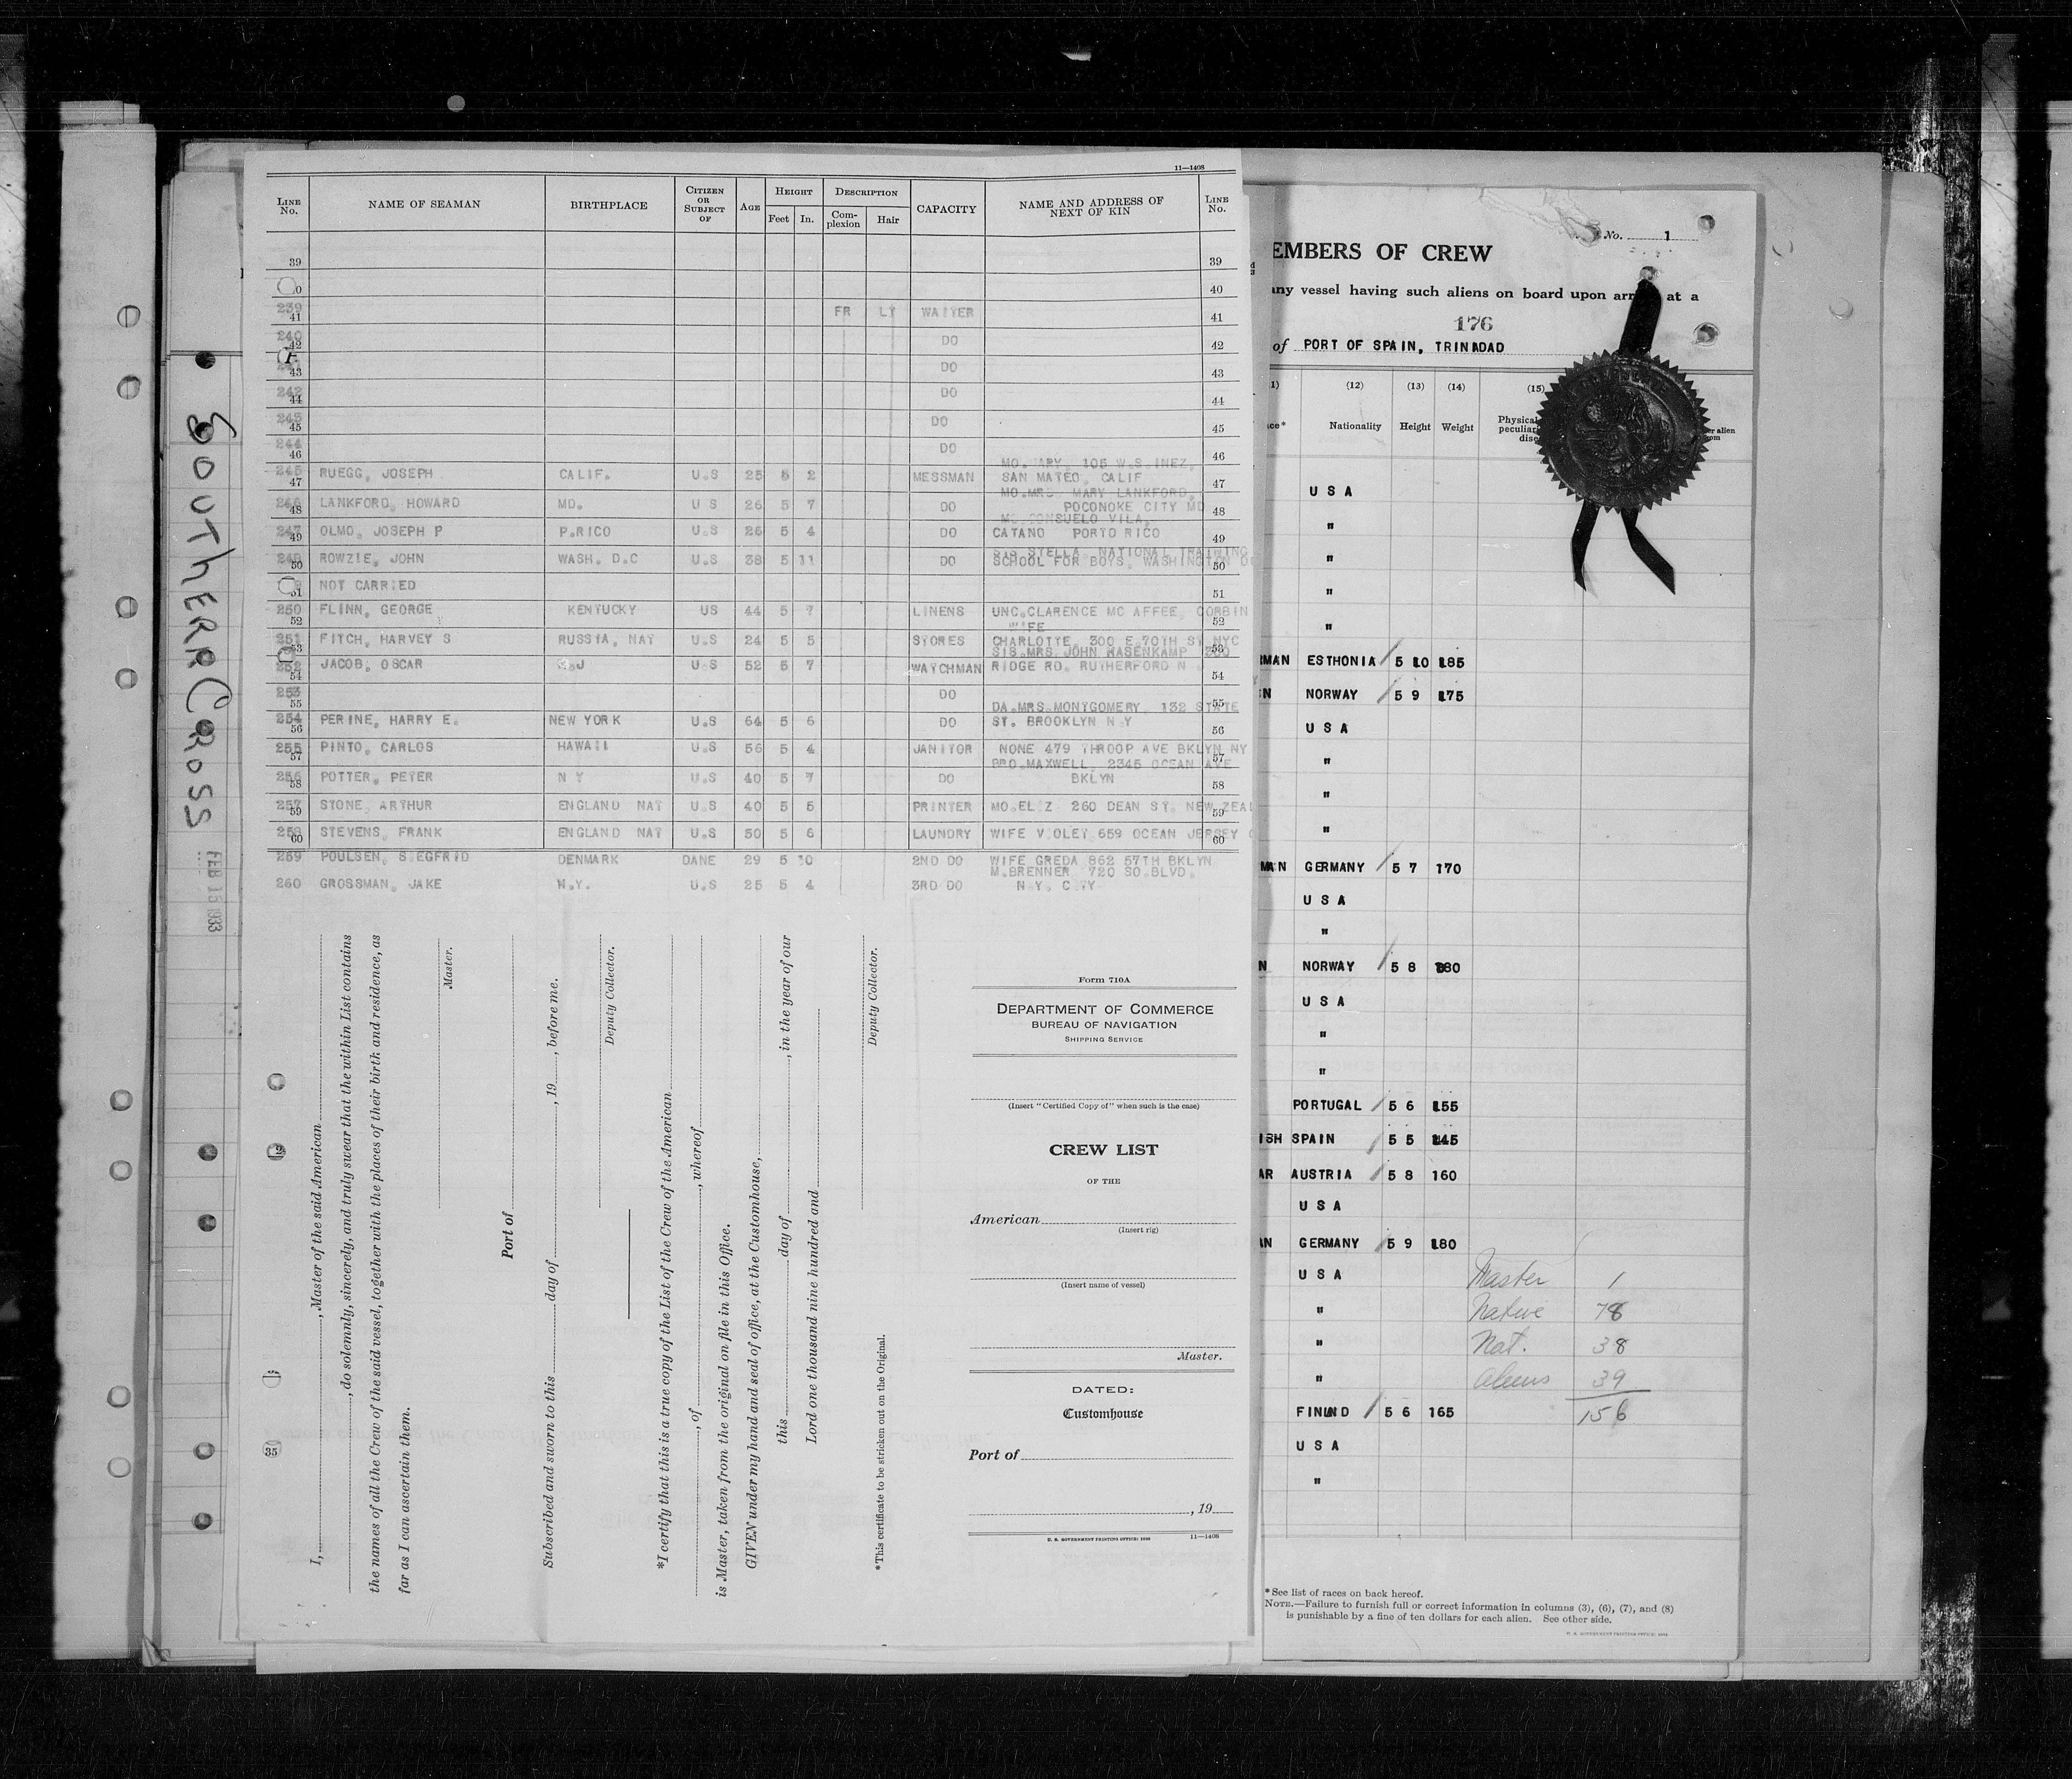 11—1408
LINE No. NAME OF SEAMAN BIRTHPLACE CITIZEN OR SUBJECT OF AGE HEIGHT Feet In. DESCRIPTION Complexion Hair CAPACITY NAME AND ADDRESS OF NEXT OF KIN LINE No.
39 39
40
239 41 FR LT WAITER 41
240 42 DO 42
43 DO 43
242 44 DO 44
243 45 DO 45
244 46 DO 46
MO. MARY, 105 W.S. INEZ,
245 47 RUEGG, JOSEPH CALIF. U.S 25 5 2 MESSMAN SAN MATEO, CALIF 47
MO.MRS. MARY LANKFORD,
246 48 LANKFORD, HOWARD MD. U S 26 5 7 DO POCONOKE CITY MD 48
CONSUELO VILA,
247 49 OLMO, JOSEPH P P.RICO U.S 26 5 4 DO CATANO PORTO RICO 49
SIS STELLA, NATIONAL TRAINING
248 50 ROWZIE, JOHN WASH. D.C U.S 38 5 11 DO SCHOOL FOR BOYS, WASHINGTON 50
51 NOT CARRIED 51
250 52 FLINN, GEORGE KENTUCKY US 44 5 7 LINENS UNC.CLARENCE MC AFFEE, CORBIN 52
WIFE
251 53 FITCH, HARVEY S RUSSIA, NAT U.S 24 5 5 STORES CHARLOTTE, 300 E 70TH ST NYC 53
SIS.MRS. JOHN RASENKAMP
252 54 JACOB, OSCAR N.J U.S 52 5 7 WATCHMAN RIDGE RD. RUTHERFORD N 54
253 55 DO 55
DA.MRS.MONTGOMERY, 132 STATE
254 56 PERINE, HARRY E. NEW YORK U.S 64 5 6 DO ST. BROOKLYN N.Y 56
255 57 PINTO, CARLOS HAWAII U.S 56 5 4 JANITOR NONE 479 THROOP AVE BKLYN NY 57
BRO.MAXWELL, 2345 OCEAN AVE
256 58 POTTER, PETER N Y U.S 40 5 7 DO BKLYN 58
257 59 STONE, ARTHUR ENGLAND NAT U.S 40 5 5 PRINTER MO.ELIZ 260 DEAN ST. NEW ZEAL 59
258 60 STEVENS, FRANK ENGLAND NAT U.S 50 5 6 LAUNDRY WIFE VIOLET 659 OCEAN JERSEY 60
259 POULSEN, SIEGFRID DENMARK DANE 29 5 10 2ND DO WIFE GREDA 862 57TH BKLYN
M.BRENNER 720 SO.BLVD.
260 GROSSMAN, JAKE N.Y. U.S 25 5 4 3RD DO N.Y. CITY
I, , Master of the said American
, do solemnly, sincerely, and truly swear that the within List contains
the names of all the Crew of the said vessel, together with the places of their birth and residence, as
far as I can ascertain them.
Master.
Port of
Subscribed and sworn to this day of , 19 , before me.
Deputy Collector.
*I certify that this is a true copy of the List of the Crew of the American
, of , whereof
is Master, taken from the original on file in this Office.
GIVEN under my hand and seal of office, at the Customhouse,
this day of , in the year of our
Lord one thousand nine hundred and
Deputy Collector.
*This certificate to be stricken out on the Original.
Form 710A
DEPARTMENT OF COMMERCE
BUREAU OF NAVIGATION
SHIPPING SERVICE
(Insert "Certified Copy of" when such is the case)
CREW LIST
OF THE
American
(Insert rig)
(Insert name of vessel)
Master.
DATED:
Customhouse
Port of
, 19
U. S. GOVERNMENT PRINTING OFFICE: 11—1408
SOUTHERN CROSS
FEB 15 1933
35
No. 1
EMBERS OF CREW
any vessel having such aliens on board upon arr at a
176
of PORT OF SPAIN, TRINADAD
(12) (13) (14) (15)
Nationality Height Weight Physical
U S A
"
"
"
"
ESTHONIA 5 10 185
NORWAY 5 9 175
U S A
"
"
"
GERMANY 5 7 170
U S A
"
NORWAY 5 8 180
U S A
"
"
PORTUGAL 5 6 155
ISH SPAIN 5 5 145
AR AUSTRIA 5 8 160
U S A
GERMANY 5 9 180
U S A Master 1
" Native 78
" Nat. 38
" Aliens 39
FINLND 5 6 165 156
U S A
"
*See list of races on back hereof.
NOTE.—Failure to furnish full or correct information in columns (3), (6), (7), and (8)
is punishable by a fine of ten dollars for each alien. See other side.